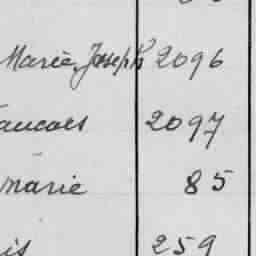 Marie Joseph 2096
ancois 2097
marie 85
is 259